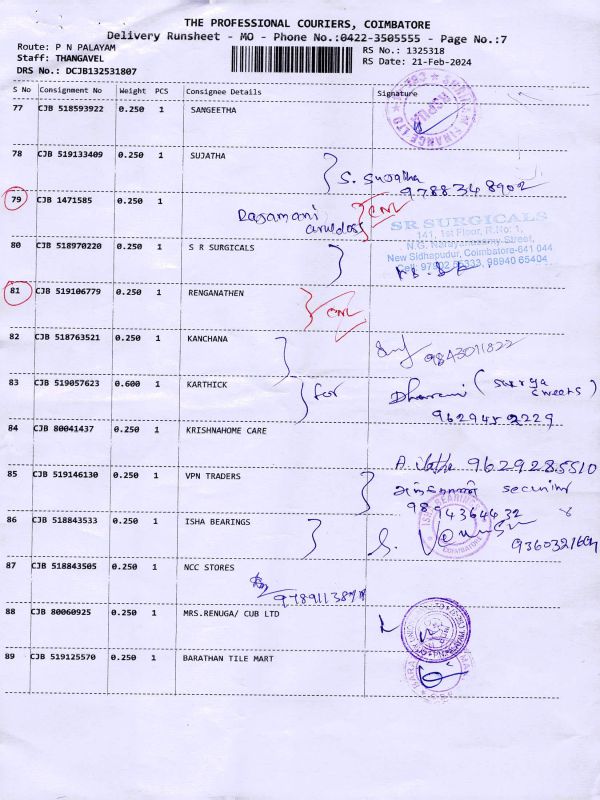 THE PROFESSIONAL COURIERS, COIMBATORE
Delivery Runsheet - MO - Phone No.:0422-3505555 - Page No.:7
Route: P N PALAYAM
Staff: THANGAVEL
DRS No.: DCJB132531807
RS No.: 1325318
RS Date: 21-Feb-2024
S No Consignment No Weight PCS Consignee Details Signature
77 CJB 518593922 0.250 1 SANGEETHA
78 CJB 519133409 0.250 1 SUJATHA
S. Sujatha
9788348902
79 CJB 1471585 0.250 1
Rasamani
80 CJB 518970220 0.250 1 S R SURGICALS
SR SURGICALS
141, 1st Floor, R.No: 1,
N.G. Narayanasamy Street,
New Sidhapudur, Coimbatore-641 044
81 CJB 519106779 0.250 1 RENGANATHEN
82 CJB 518763521 0.250 1 KANCHANA
9843011822
83 CJB 519057623 0.600 1 KARTHICK
for Dharani (surya sweets)
9629482229
84 CJB 80041437 0.250 1 KRISHNAHOME CARE
9629285510
85 CJB 519146130 0.250 1 VPN TRADERS
security
9894364432
86 CJB 518843533 0.250 1 ISHA BEARINGS
87 CJB 518843505 0.250 1 NCC STORES
88 CJB 80060925 0.250 1 MRS.RENUGA/ CUB LTD
89 CJB 519125570 0.250 1 BARATHAN TILE MART